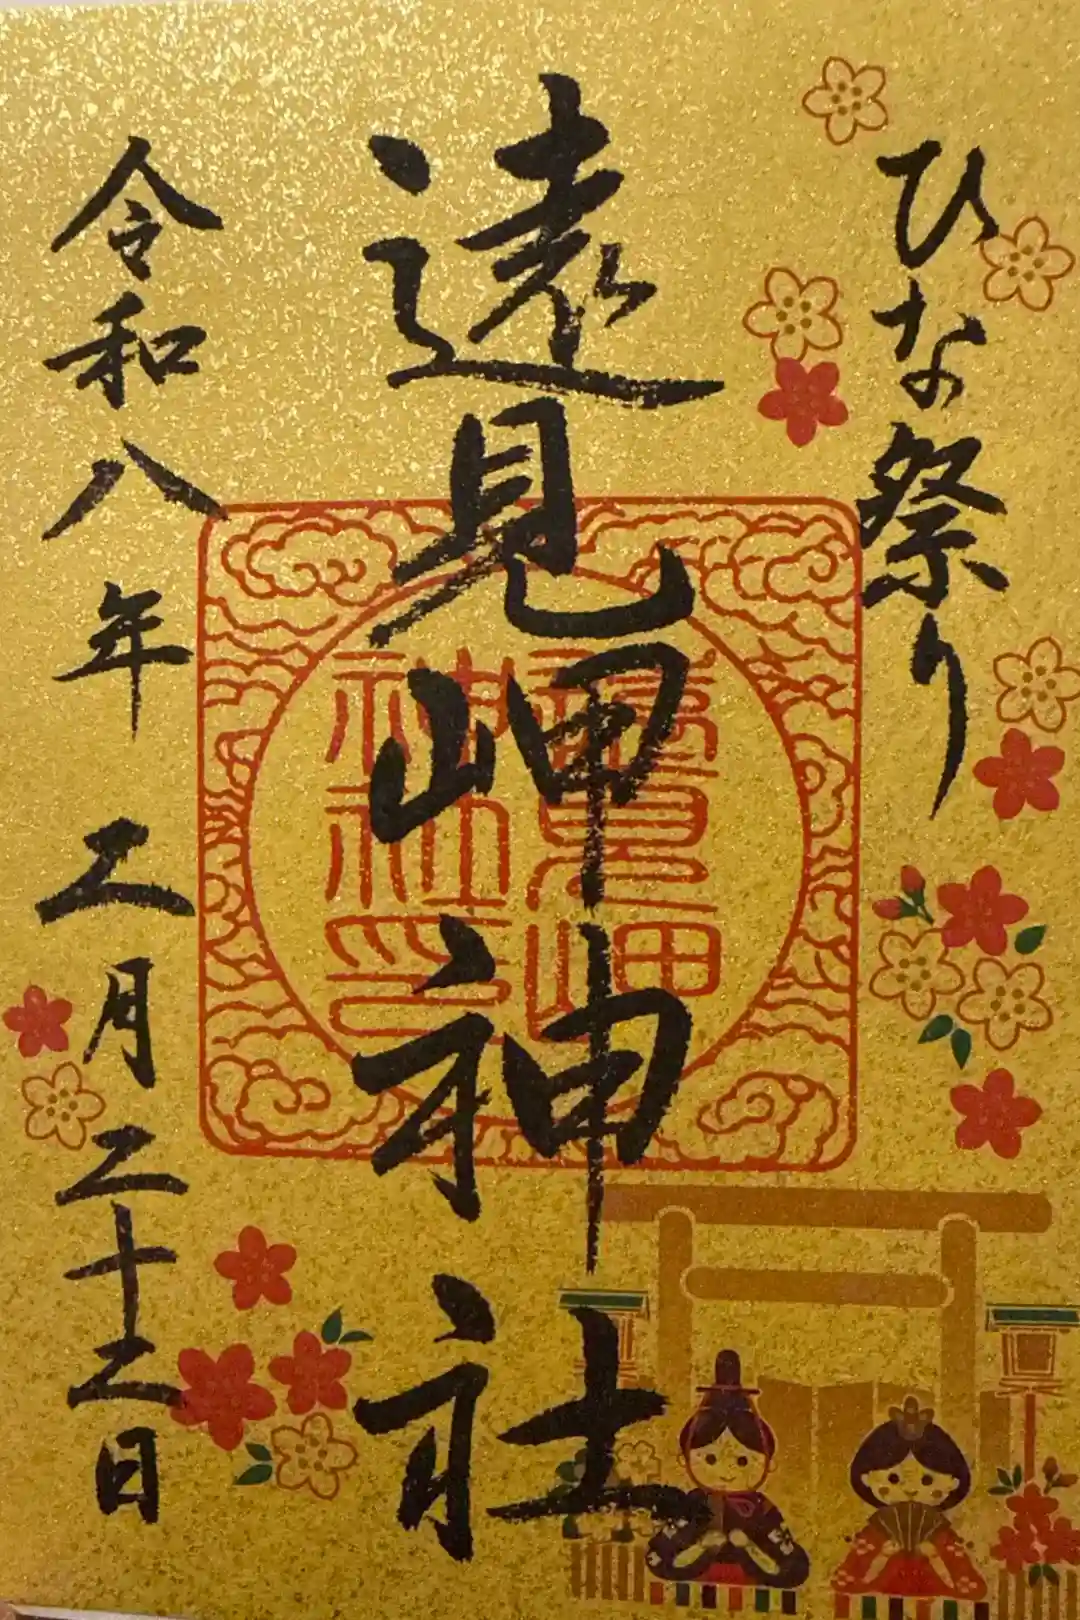 ひな祭り
遠見岬神社
遠見岬
神社印
令和八年二月二十二日